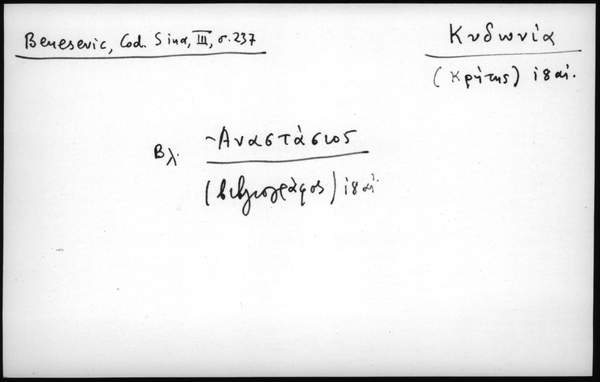 Benesevic, Cod. Sina, III, σ. 237
Κυδωνία
(Κρήτης) ιδ αἰ.
Βλ. Ἀναστάσιος
(βιβλιογράφος) ιδ αἰ.